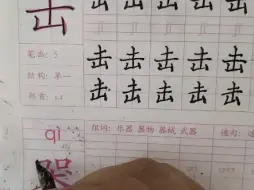 击 击 击 击 击 击
笔画：5 击 击 击 击 击
结构：单一
部首：凵 击 击 击 击 击
qì 组词：乐器 器物 器械 武器 造句：
器